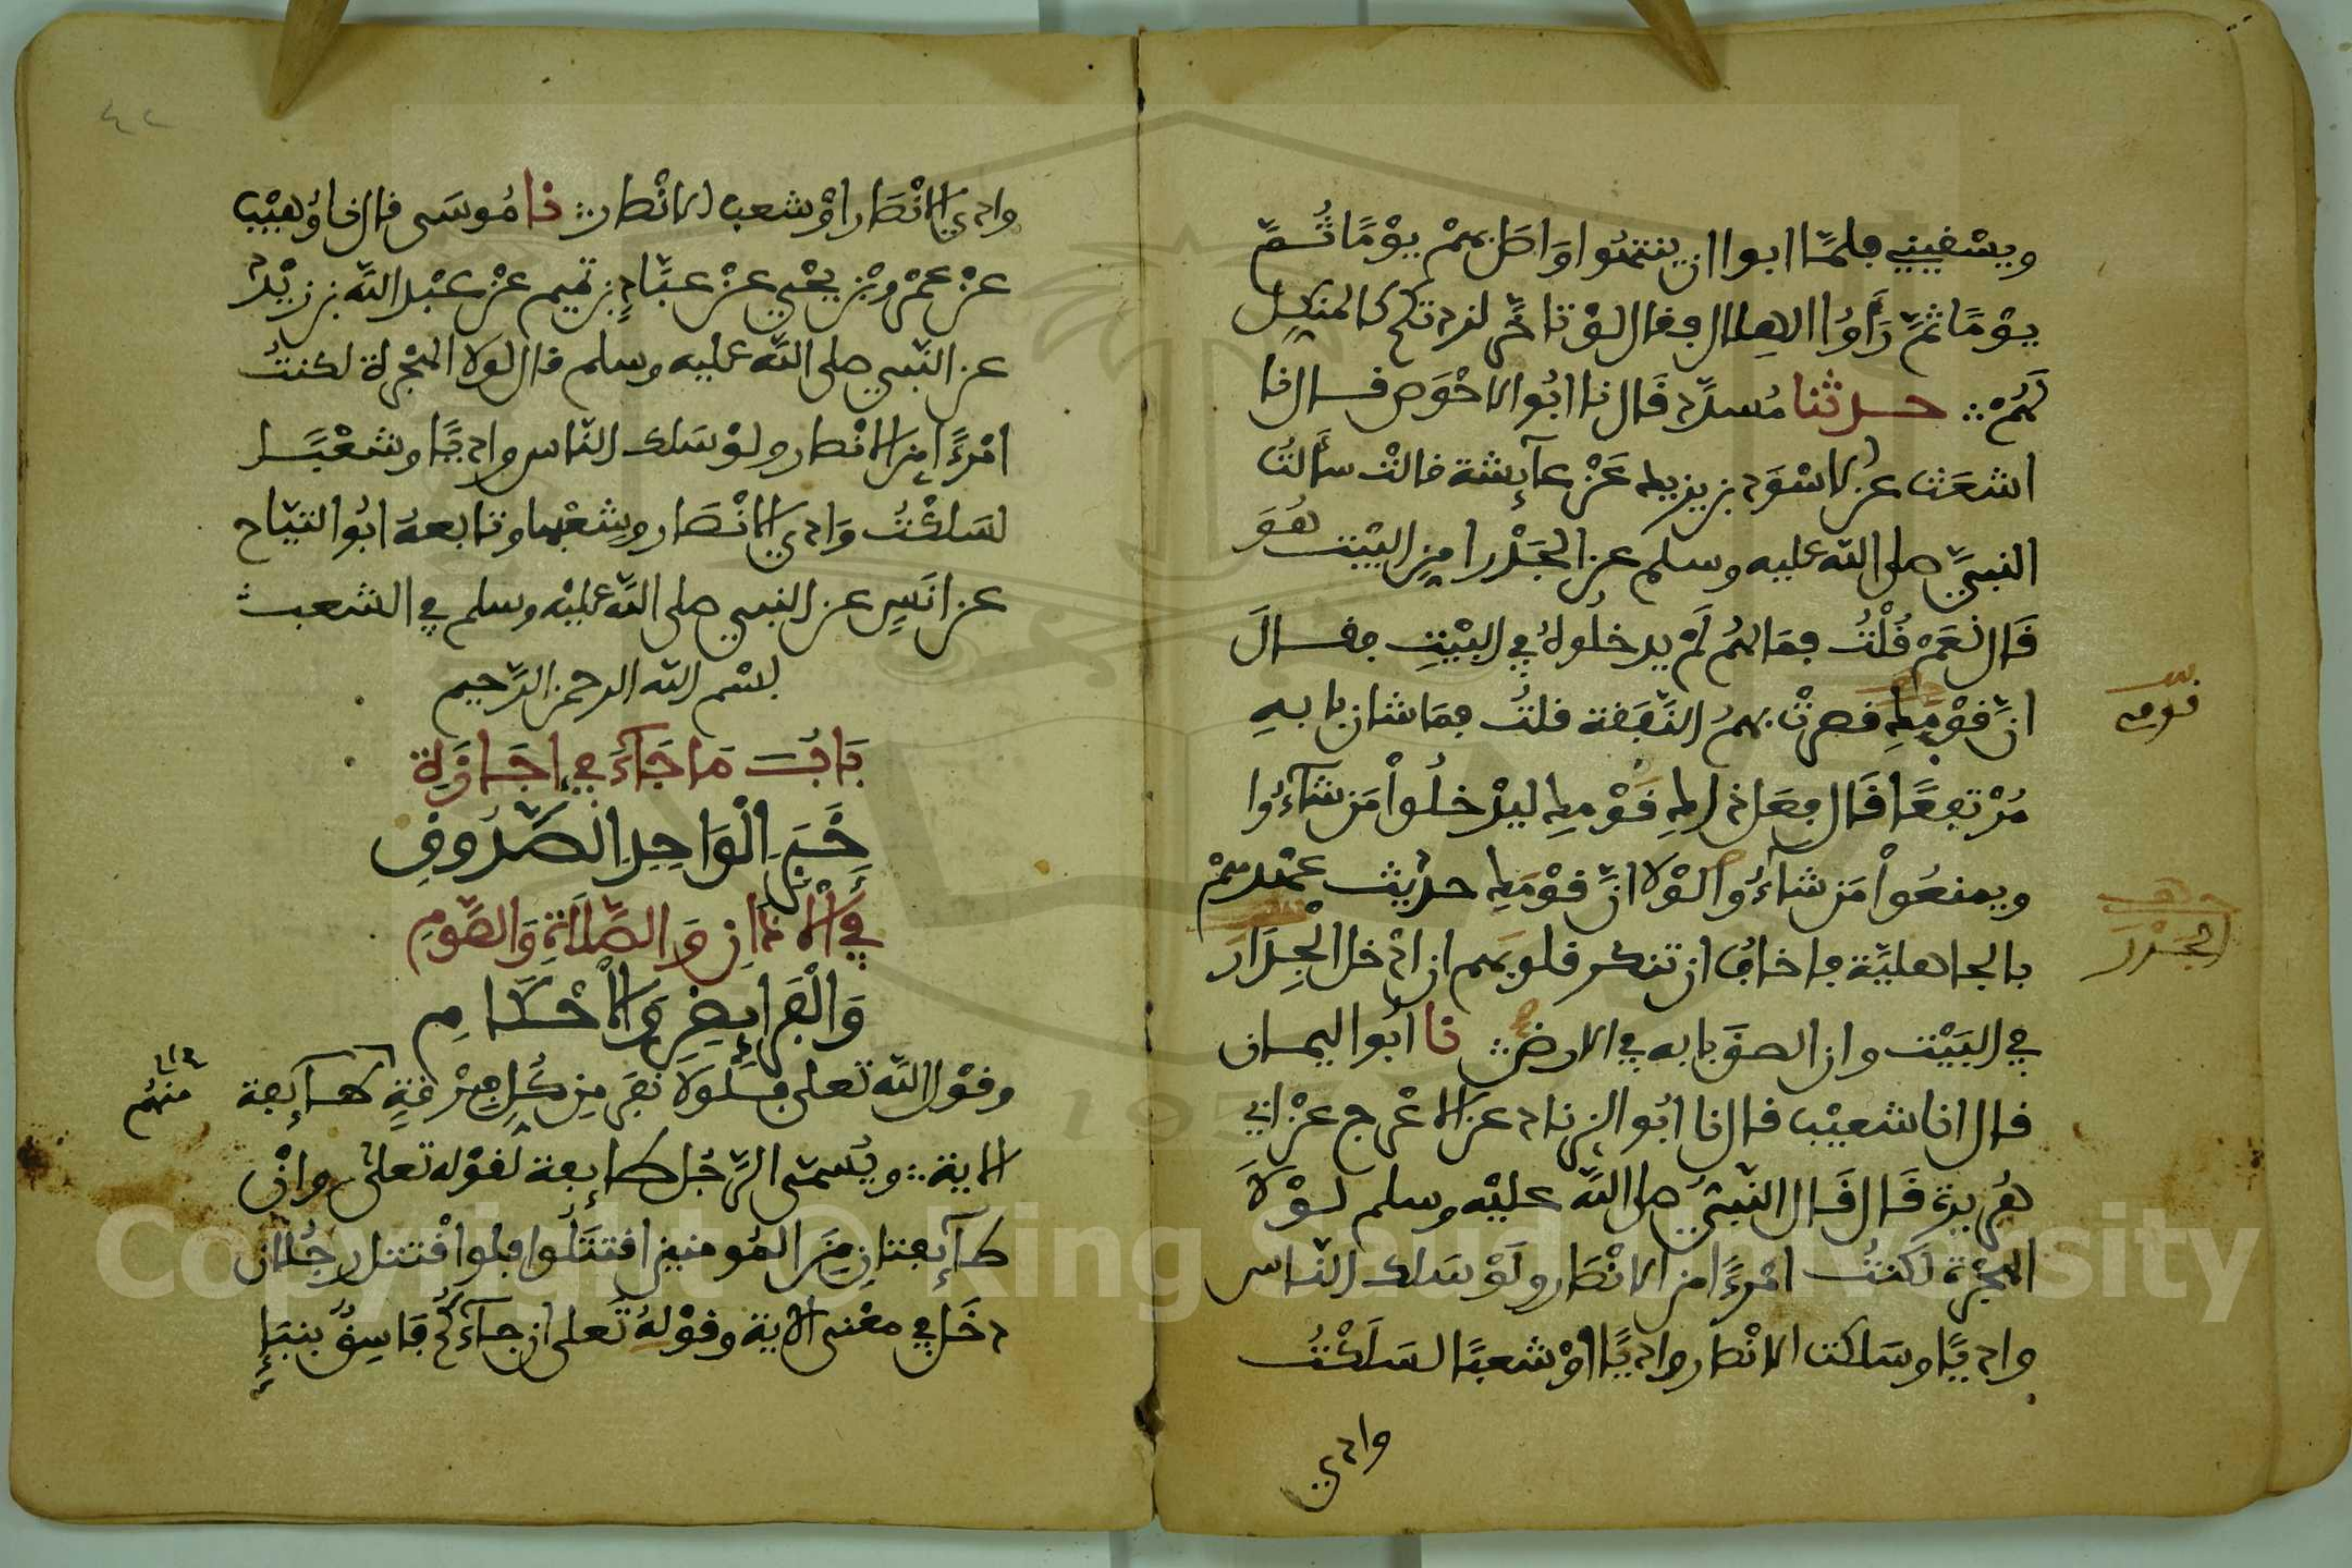 ويسقيني فلما ابوا ان ينتهوا واصل بهم يوما ثم
يوما ثم رأوا الهلال فقال لو تاخر لزدتكم كالمنكل
لهم ∴ حدثنا مسدد قال نا ابو الاحوص قال نا
اشعث عن الاسود بن يزيد عن عآئشة قالت سألت
النبي صلى الله عليه وسلم عن الجدر امن البيت هو
قال نعم قلت فما لهم لم يدخلوه في البيت فقال
ان قومك قصرت بهم النفقة قلت فما شان بابه
مرتفعا قال فعل ذلك قومك ليدخلوا من شآءوا
ويمنعوا من شآءوا لولا ان قومك حديث عهدهم
بالجاهلية فاخاف ان تنكر قلوبهم ان ادخل الجدار
الجدر
في البيت وان الصق بابه في الارض ∴ نا ابو اليمان
قال انا شعيب قال نا ابو الزناد عن الاعرج عن ابي
هريرة قال قال النبي صلى الله عليه وسلم لولا
الهجرة لكنت امرءا من الانصار ولو سلك الناس
واديا وسلكت الانصار واديا او شعبا لسلكت
وادي
٤٢
وادي الانصار او شعب الانصار ∴ نا موسى قال نا وهيب
عن عمرو بن يحيى عن عباد بن تميم عن عبد الله بن زيد
عن النبي صلى الله عليه وسلم قال لولا الهجرة لكنت
امرءا من الانصار ولو سلك الناس واديا وشعبا
لسلكت وادي الانصار وشعبها وتابعه ابو التياح
عن انس عن النبي صلى الله عليه وسلم في الشعب
بسم الله الرحمن الرحيم
باب ما جآء في إجازة
خبر الواحد الصدوف
في الاذان والصلاة والصوم
والفرايض والاحكام
وقول الله تعلى فلولا نفر من كل فرقة طآئفة
منهم
الاية ∴ ويسمى الرجل طائفة لقوله تعلى وان
طآئفتان من المومنين اقتتلوا فلوا قتتل رجلان
دخل في معنى الاية وقوله تعلى ان جآءكم فاسق بنبإ
Copyright © King Saud University